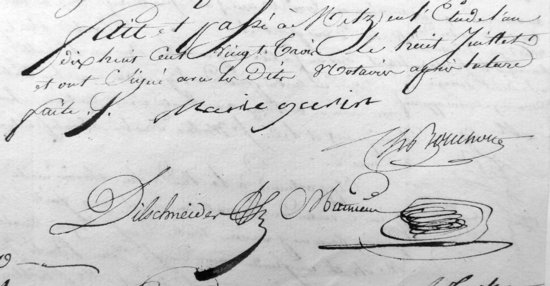 fait et passé à Metz en l'Etude l'an
dix huit cent vingt trois le huit Juillet
et ont signé avec les dits Notaires après lecture
faite.
Dilschneider